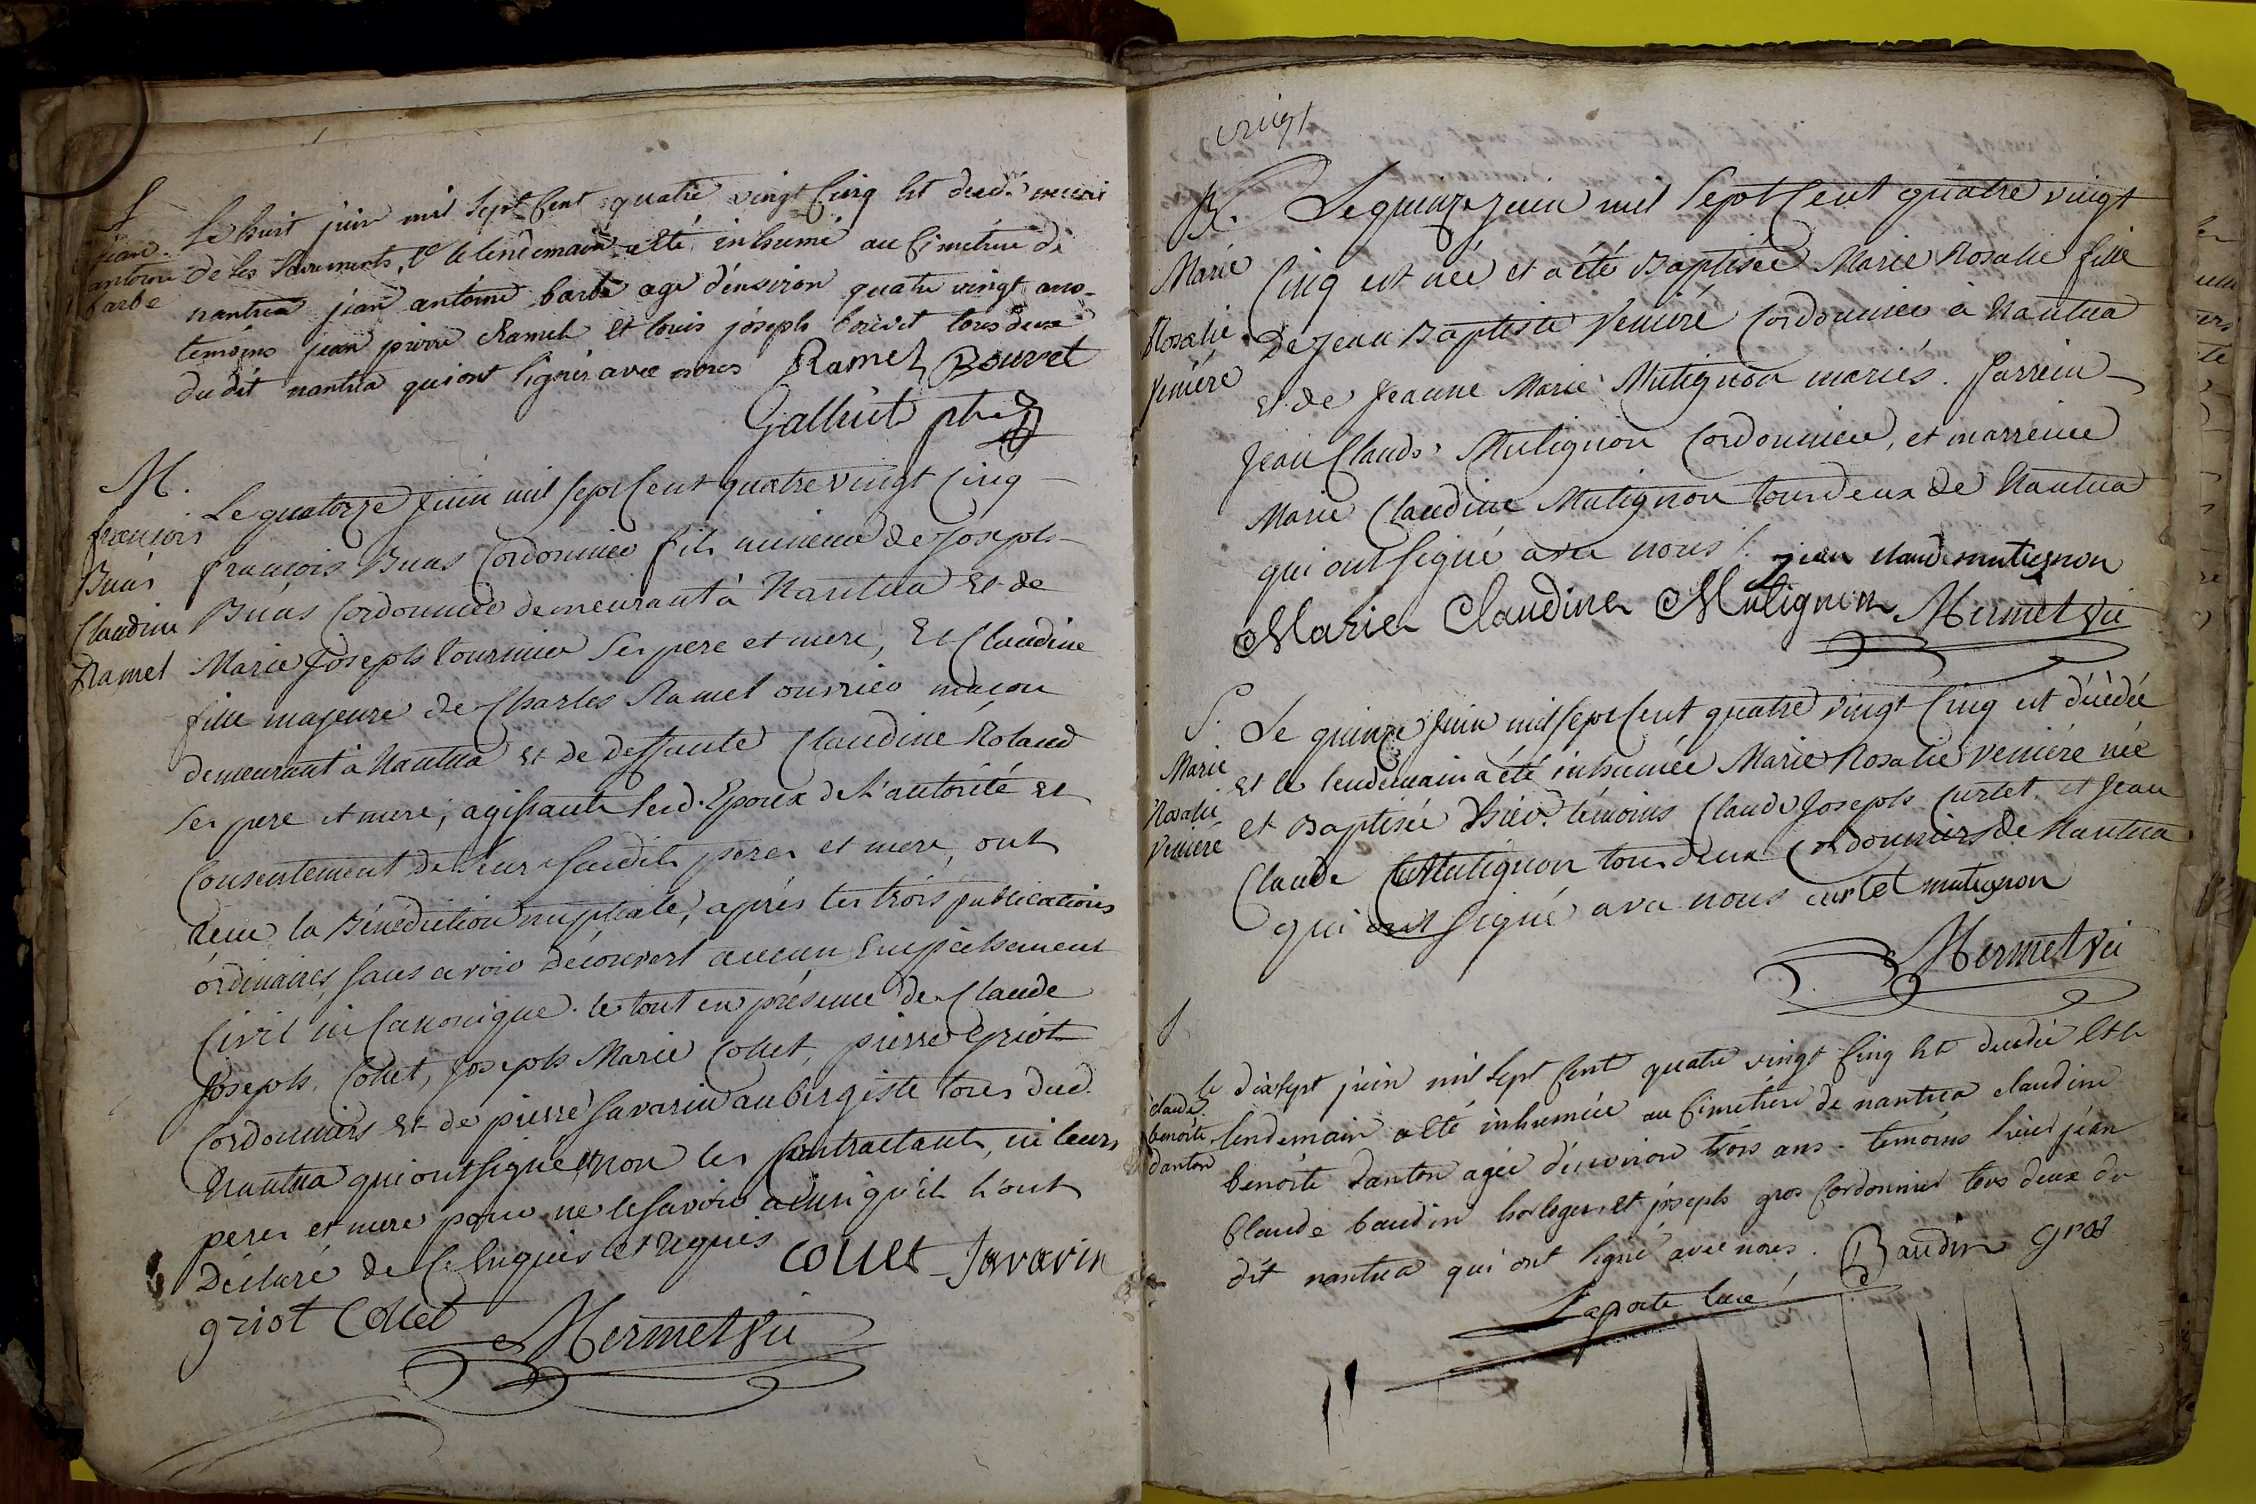 S
jean
antoine
barbe
Le huit juin mil sept Cent quatre vingt Cinq Est decedé muni
de ses Sacrements, Et le lendemain a Eté inhumé au Cimetiere de
nantua jean antoine barbe agé d'environ quatre vingt ans
temoins jean pierre Ramel Et louis joseph bouvet tous deux
du dit nantua qui ont signés avec nous Ramel Bouvet
M.
françois
Buas
Claudine
Ramel
Le quatorze Juin mil sept Cent quatre vingt Cinq
françois Buas Cordonnier fils mineur de Joseph
Buas Cordonnier demeurant à Nantua Et de
Marie Joseph tournier Ses pere et mere, Et Claudine
fille majeure de Charles Ramel ouvrier maçon
demeurant à Nantua Et de deffunte Claudine Roland
Ses pere et mere, agissants lesd. Epoux de l'autorité Et
Consentement de leur susdits peres et mere, ont
reçu la Bénédiction nuptiale, après les trois publications
ordinaires, sans avoir découvert aucun Empêchement
Civil ni Canonique. le tout en présence de Claude
Joseph Collet, Joseph Marie Collet, pierre Griot
Cordonniers Et de pierre Savarin aubergiste tous dud.
Nantua qui ont signé, non les Contractants, ni leurs
peres et mere pour ne le savoir ainsi qu'ils l'ont
Déclaré de Ce Enquis et requis Collet Savarin
griot Collet Mermet Vic
vingt
B.
Marie
Rosalie
Veniére
Le quinze juin mil sept Cent quatre vingt
Cinq est née et a été Baptisée Marie Rosalie fille
De Jean Baptiste Veniére Cordonnier à Nantua
Et de Jeanne Marie Mutignon mariés. Parrein
Jean Claude Mutignon Cordonnier, et marreine
Marie Claudine Mutignon tous deux de Nantua
qui ont signé avec nous /. jean claude mutignon
Marie Claudine Mutignon Mermet Vic
S.
Marie
Rosalie
Veniére
Le quinze Juin mil sept Cent quatre vingt Cinq est décédée
et le lendemain a été inhumée Marie Rosalie Veniére née
et Baptisée hier. témoins Claude Joseph Curtet et Jean
Claude Mutignon tous deux Cordonniers de Nantua
qui ont signé avec nous curtet mutignon
Mermet Vic
S
claude
benoite
danton
le dixsept juin mil sept Cent quatre vingt Cinq Est decedée Et le
lendemain a Eté inhumée au Cimetiere de nantua claudine
benoite danton agée d'environ trois ans. temoins sieur jean
Claude baudin horloger, Et joseph gros Cordonnier tous deux du
dit nantua qui ont signé avec nous. Baudin gros
Laporte curé